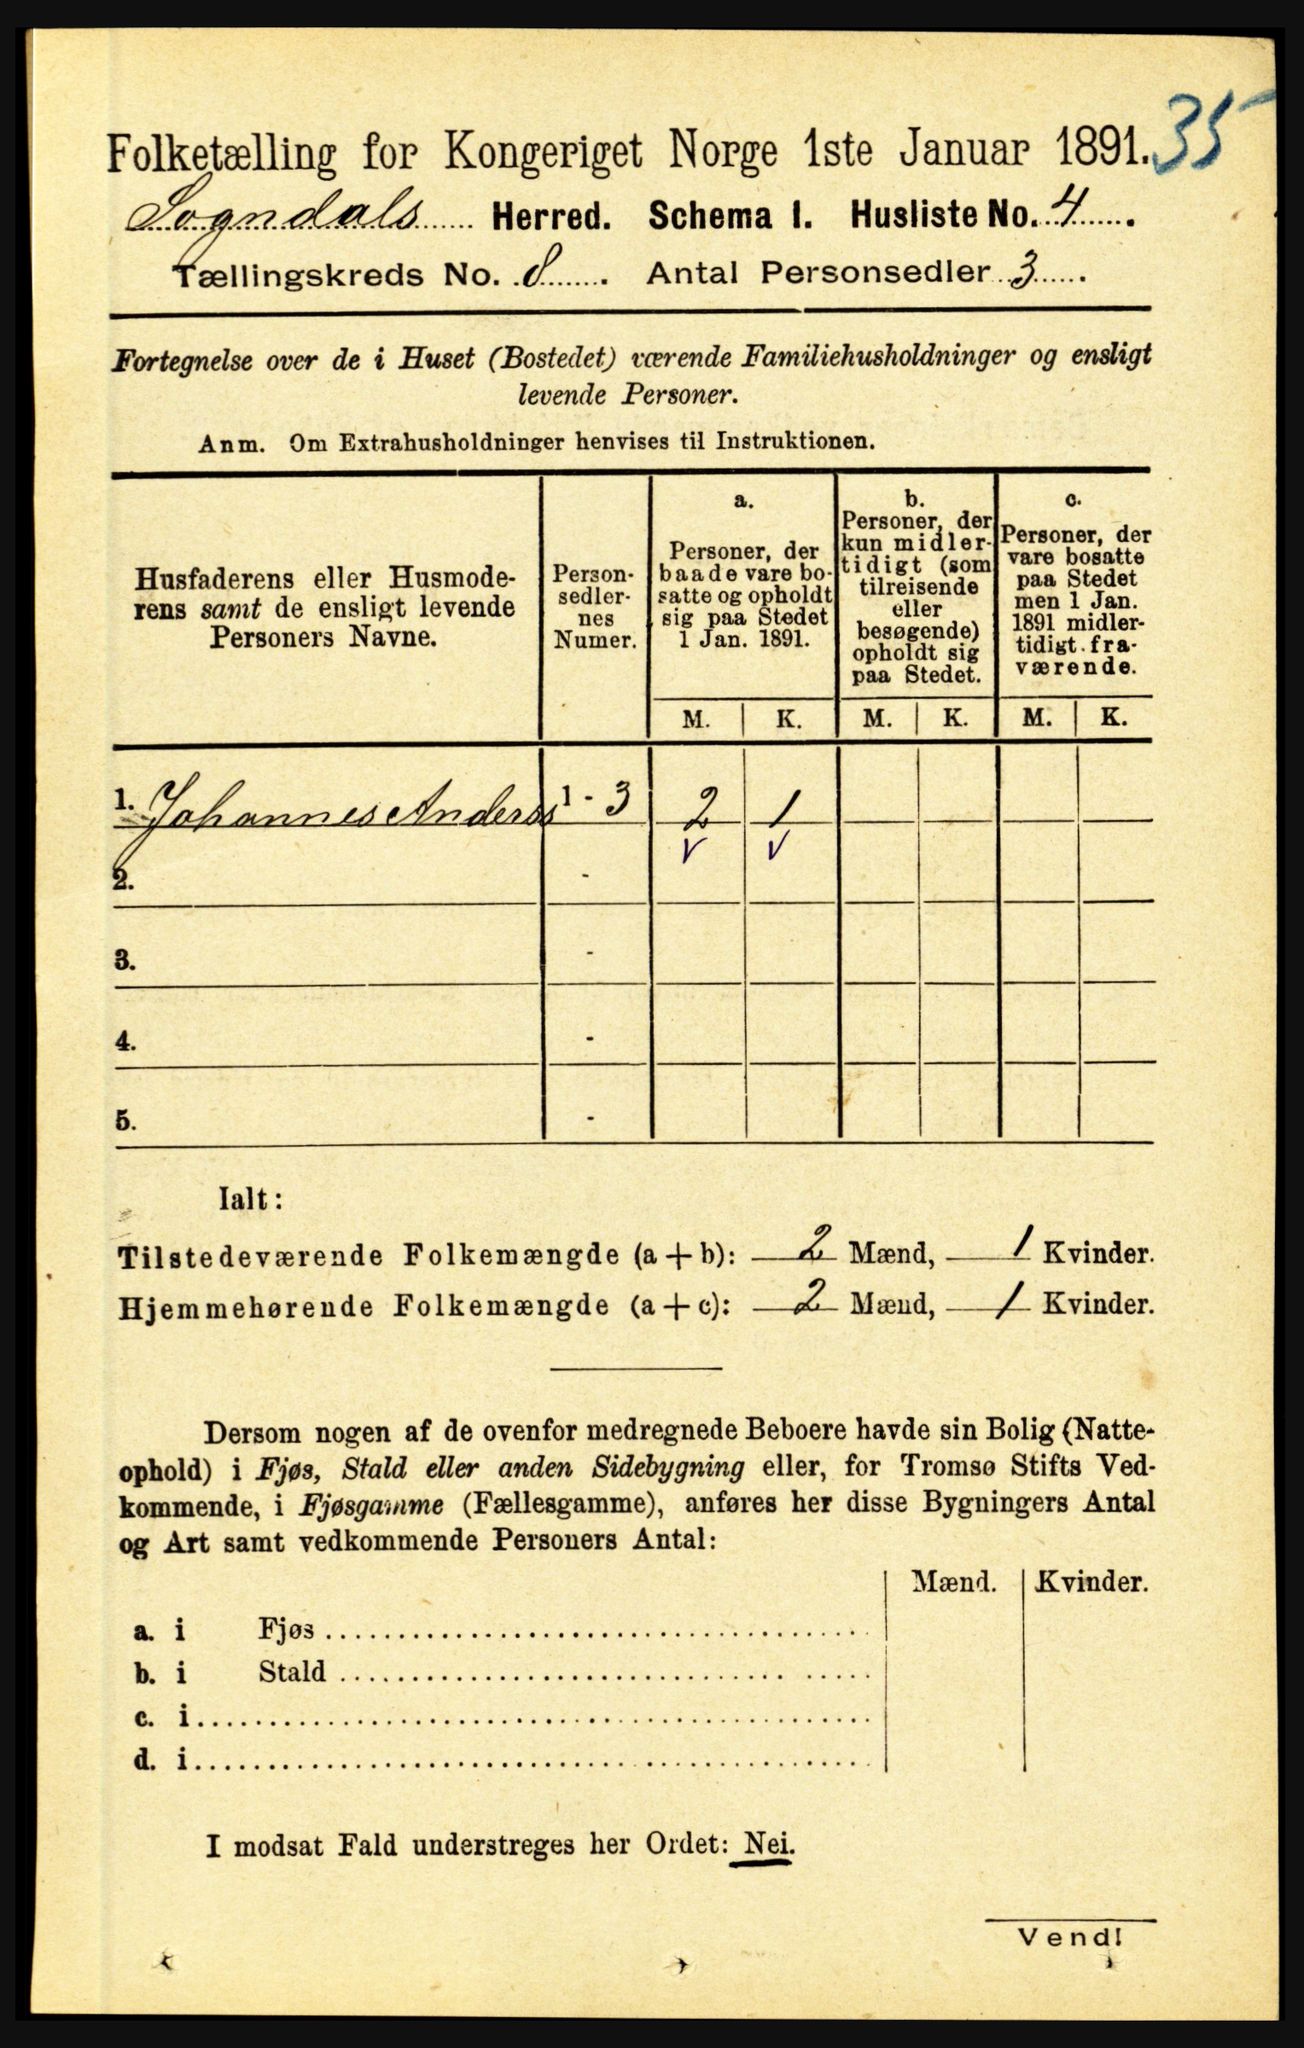 35
Folketælling for Kongeriget Norge 1ste Januar 1891.
Sogndals Herred. Schema I. Husliste No. 4.
Tællingskreds No. 8. Antal Personsedler 3.
Fortegnelse over de i Huset (Bostedet) værende Familiehusholdninger og ensligt
levende Personer.
Anm. Om Extrahusholdninger henvises til Instruktionen.
Husfaderens eller Husmode-
rens samt de ensligt levende
Personers Navne.
Person-
sedler-
nes
Numer.
a.
Personer, der
baade vare bo-
satte og opholdt
sig paa Stedet
1 Jan. 1891.
b.
Personer, der
kun midler-
tidigt (som
tilreisende
eller
besøgende)
opholdt sig
paa Stedet.
c.
Personer, der
vare bosatte
paa Stedet
men 1 Jan.
1891 midler-
tidigt fra-
værende.
M. K. M. K. M. K.
1. Johannes Anderss 1 - 3 2 1
2. -
3. -
4. -
5. -
Ialt:
Tilstedeværende Folkemængde (a + b): 2 Mænd, 1 Kvinder.
Hjemmehørende Folkemængde (a + c): 2 Mænd, 1 Kvinder.
Dersom nogen af de ovenfor medregnede Beboere havde sin Bolig (Natte-
ophold) i Fjøs, Stald eller anden Sidebygning eller, for Tromsø Stifts Ved-
kommende, i Fjøsgamme (Fællesgamme), anføres her disse Bygningers Antal
og Art samt vedkommende Personers Antal:
Mænd. Kvinder.
a. i Fjøs
b. i Stald
c. i
d. i
I modsat Fald understreges her Ordet: Nei.
Vend!